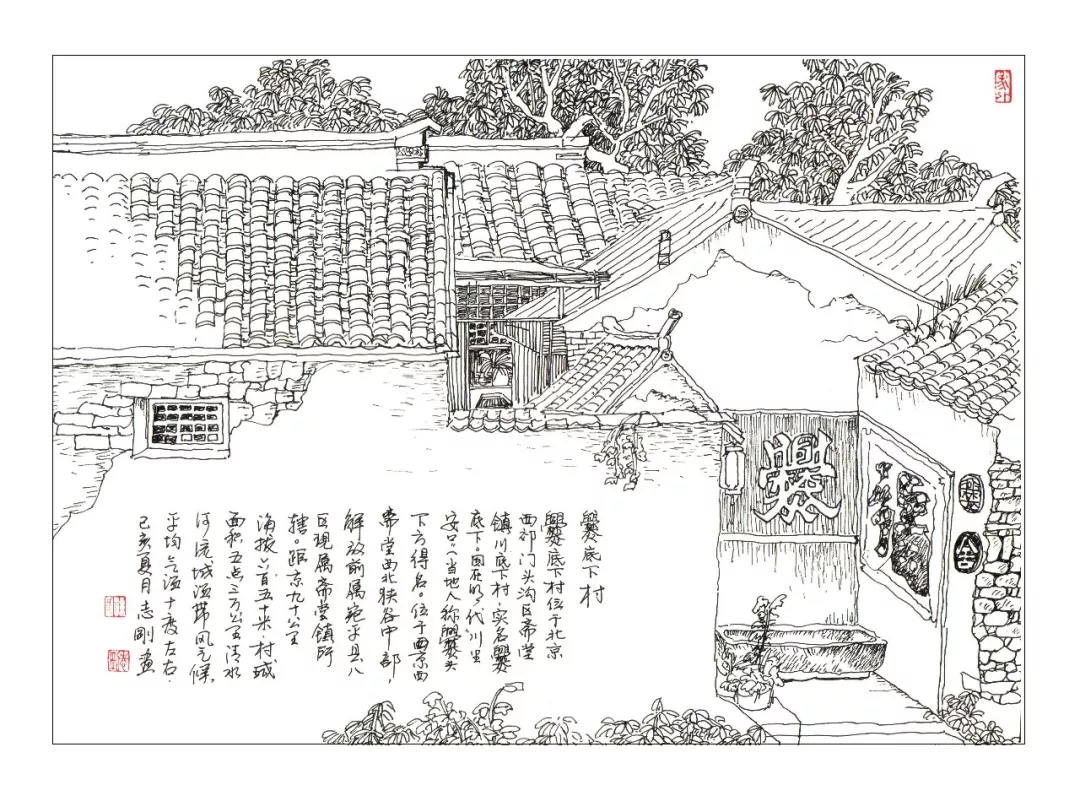 爨底下村
爨底下村位于北京
西郊门头沟区斋堂
镇川底下村,实名爨
底下。因在明代川里
安口(当地人称爨头
下方得名。位于京西
斋堂西北狭谷中部,
解放前属宛平县八
区现属斋堂镇所
辖。距京九十公里
海拔六百五十米.村域
面积五点三方公里清水
河流域温带风气候
平均气温十度左右.
己亥夏月志刚画
爨
爨
舍